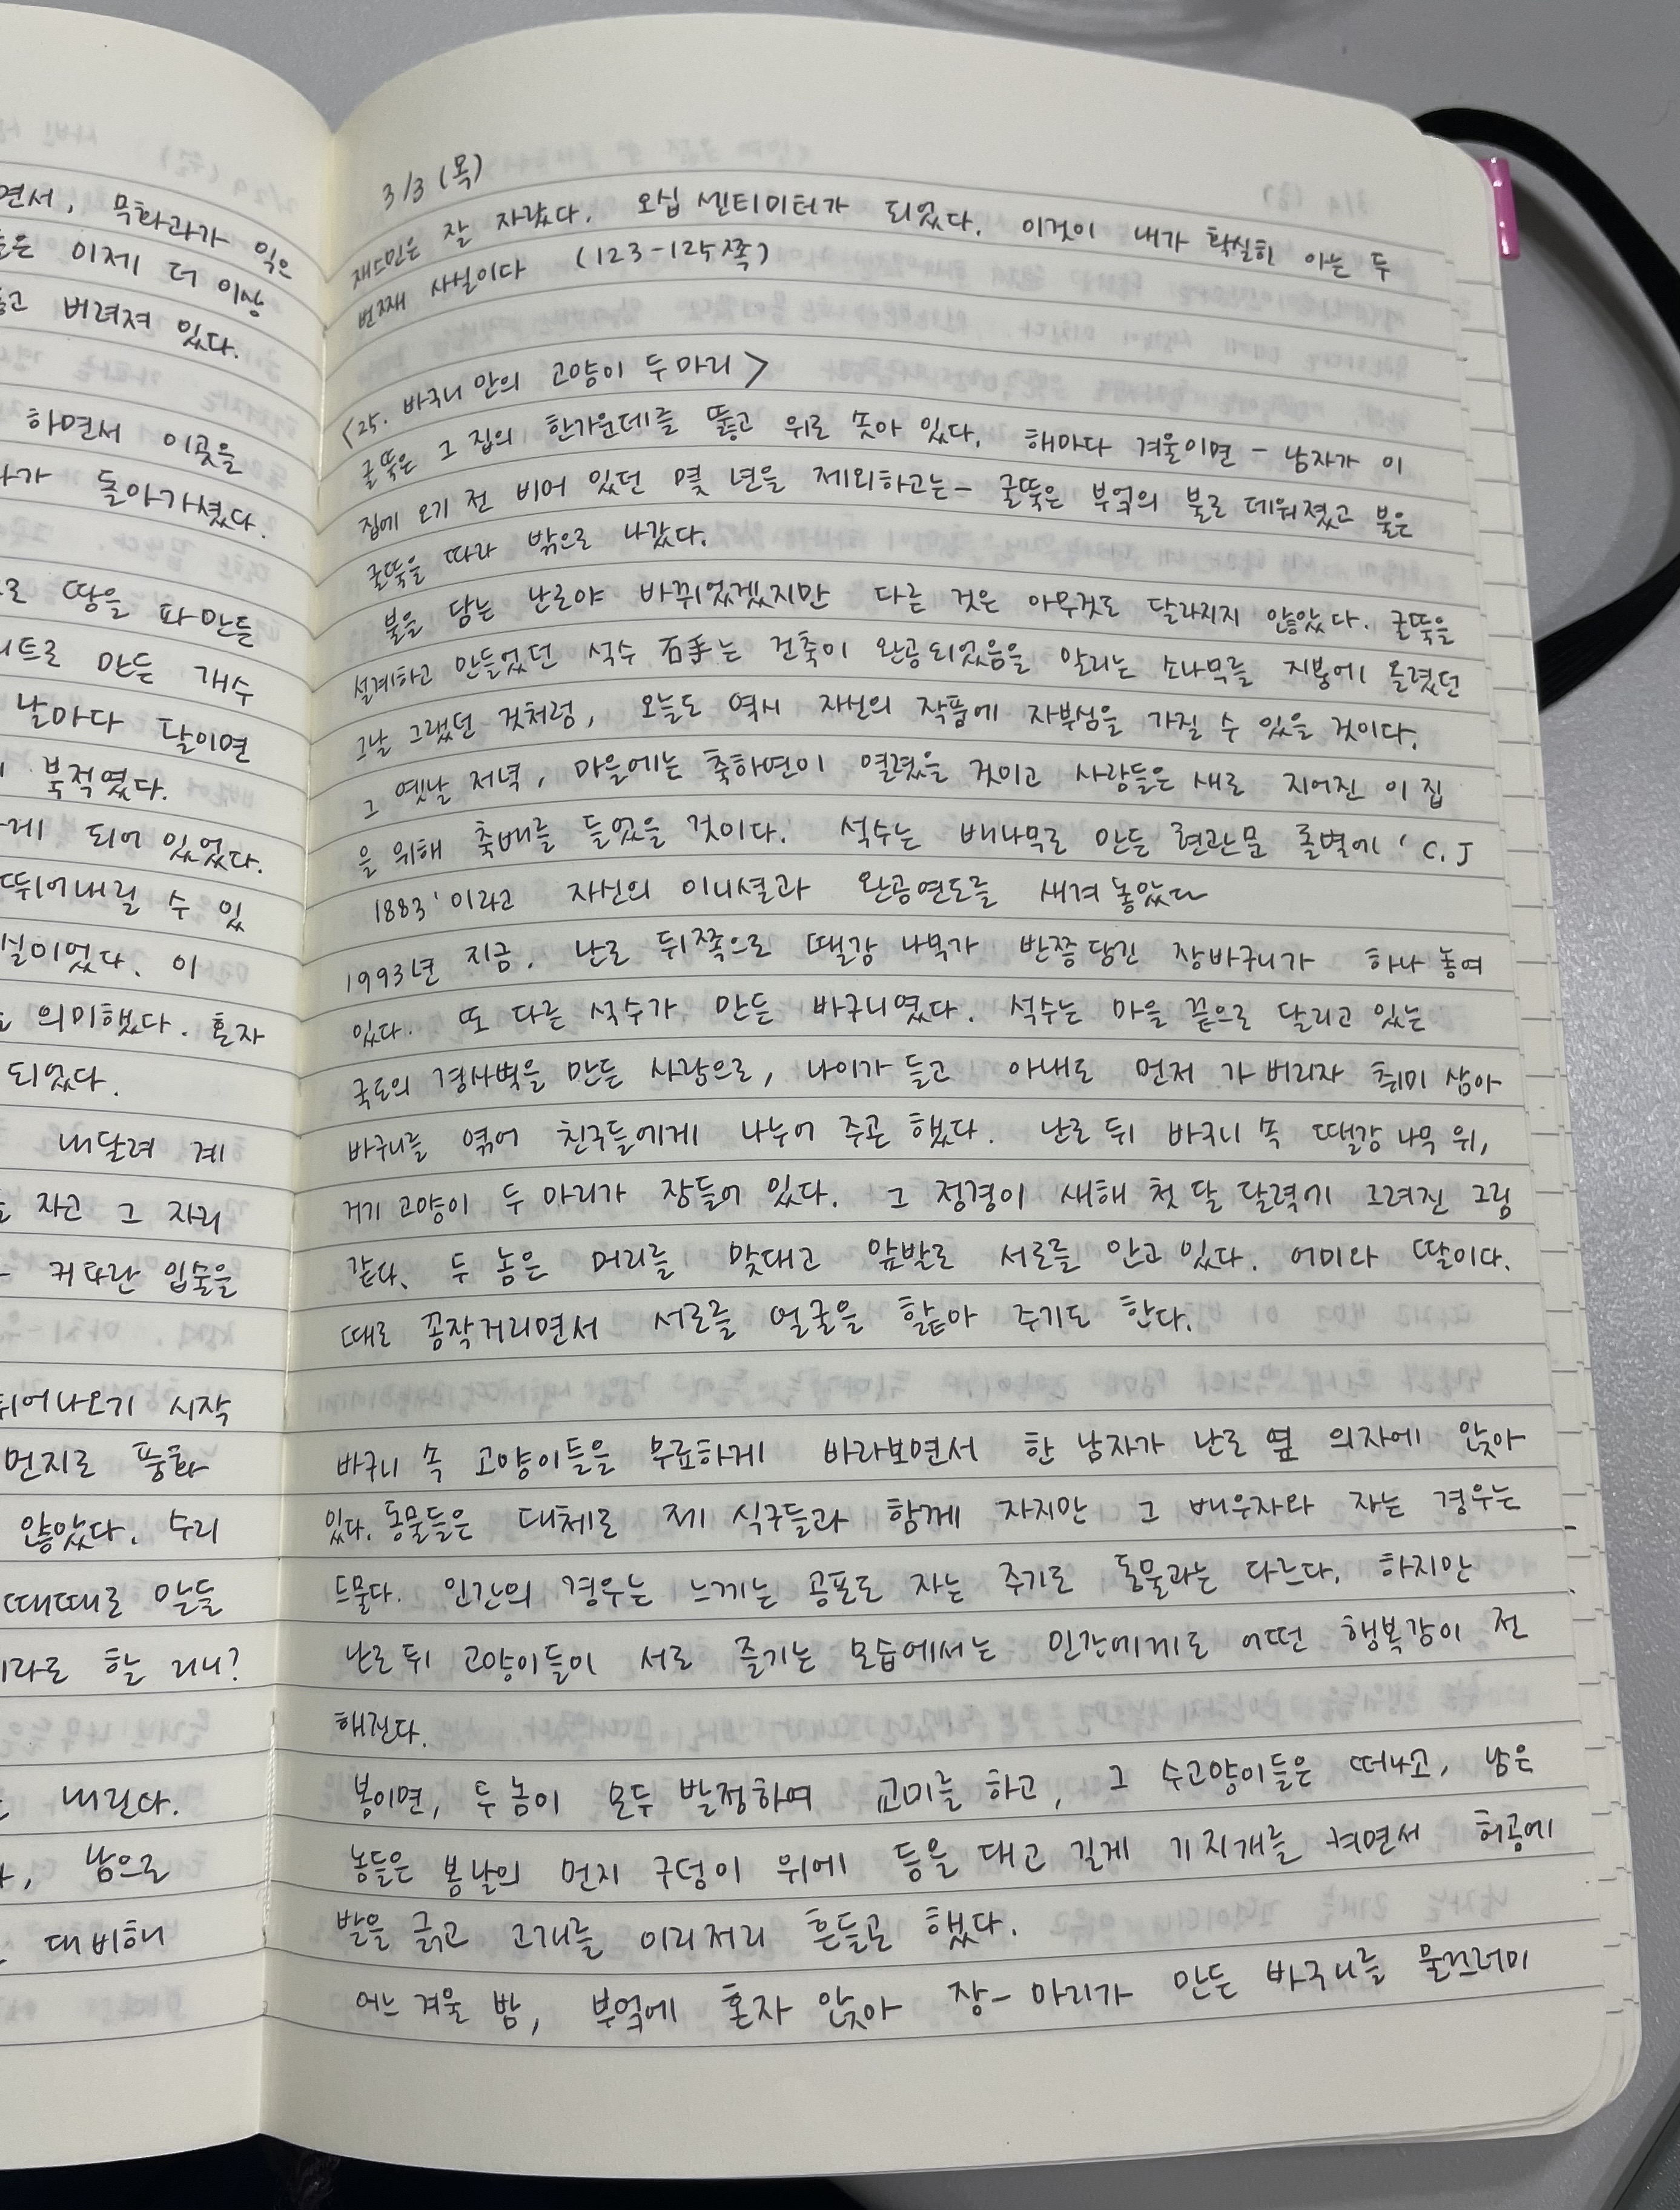 면서, 무화과가 익은
은 이제 더 이상
고 버려져 있다.
하면서 이곳을
가 돌아가셨다.
로 땅을 파 만든
트로 만든 개수
날마다 달이면
북적였다.
게 되어 있었다.
뛰어내릴 수 있
실이었다. 이
의미했다. 혼자
되었다.
내달려 계
자고 그 자리
커다란 입술을
뛰어나오기 시작
먼지로 풍화
않았다. 수리
때때로 말들
라로 할 거니?
내린다.
, 남으로
대비해
3/3 (목)
재스민은 잘 자랐다. 오십 센티미터가 되었다. 이것이 내가 확실히 아는 두
번째 사실이다 (123-125쪽)
<25. 바구니 안의 고양이 두 마리>
굴뚝은 그 집의 한가운데를 뚫고 위로 솟아 있다. 해마다 겨울이면 - 남자가 이
집에 오기 전 비어 있던 몇 년을 제외하고는 - 굴뚝은 부엌의 불로 데워졌고 불은
굴뚝을 따라 밖으로 나갔다.
불을 담는 난로야 바뀌었겠지만 다른 것은 아무것도 달라지지 않았다. 굴뚝을
설계하고 만들었던 석수 石手는 건축이 완공되었음을 알리는 소나무를 지붕에 올렸던
그날 그랬던 것처럼, 오늘도 역시 자신의 작품에 자부심을 가질 수 있을 것이다.
그 옛날 저녁, 마을에는 축하연이 열렸을 것이고 사람들은 새로 지어진 이 집
을 위해 축배를 들었을 것이다. 석수는 배나무로 만든 현관문 돌벽에 'C.J
1883'이라고 자신의 이니셜과 완공연도를 새겨 놓았다
1993년 지금. 난로 뒤쪽으로 땔감 나무가 반쯤 담긴 장바구니가 하나 놓여
있다. 또 다른 석수가 만든 바구니였다. 석수는 마을 끝으로 달리고 있는
국도의 경사벽을 만든 사람으로, 나이가 들고 아내도 먼저 가 버리자 취미 삼아
바구니를 엮어 친구들에게 나누어 주곤 했다. 난로 뒤 바구니 속 땔감 나무 위,
거기 고양이 두 마리가 잠들어 있다. 그 정경이 새해 첫 달 달력에 그려진 그림
같다. 두 놈은 머리를 맞대고 앞발로 서로를 안고 있다. 어미와 딸이다.
때로 꼼작거리면서 서로를 얼굴을 핥아 주기도 한다.
바구니 속 고양이들을 무료하게 바라보면서 한 남자가 난로 옆 의자에 앉아
있다. 동물들은 대체로 제 식구들과 함께 자지만 그 배우자와 자는 경우는
드물다. 인간의 경우는 느끼는 공포도 자는 주기도 동물과는 다르다. 하지만
난로 뒤 고양이들이 서로 즐기는 모습에서는 인간에게로 어떤 행복감이 전
해진다.
봄이면, 두 놈이 모두 발정하여 교미를 하고, 그 수고양이들은 떠나고, 남은
놈들은 봄날의 먼지 구덩이 위에 등을 대고 길게 기지개를 켜면서 허공에
발을 긁고 고개를 이리저리 흔들곤 했다.
어느 겨울 밤, 부엌에 혼자 앉아 장-마리가 만든 바구니를 물끄러미